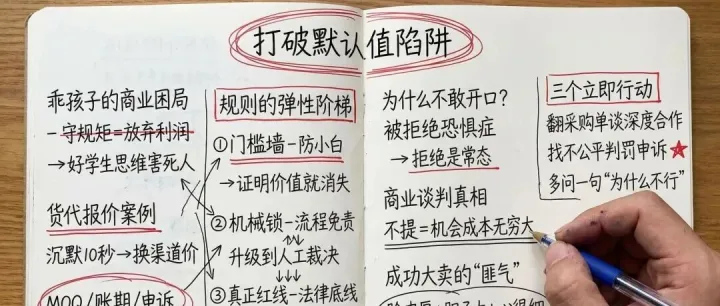 打破默认值陷阱
乖孩子的商业困局
-守规矩=放弃利润
→好学生思维害死人
货代报价案例
沉默10秒→换渠道价
MOQ/账期/申诉
规则的弹性阶梯
①门槛墙-防小白
→证明价值就消失
②机械锁-流程免责
升级到人工裁决
③真正红线-法律底线
为什么不敢开口?
被拒绝恐惧症
→拒绝是常态
商业谈判真相
不提=机会成本无穷大
成功大卖的“匪气”
三个立即行动
翻采购单谈深度合作
找不公平判罚申诉★
多问一句“为什么不行”